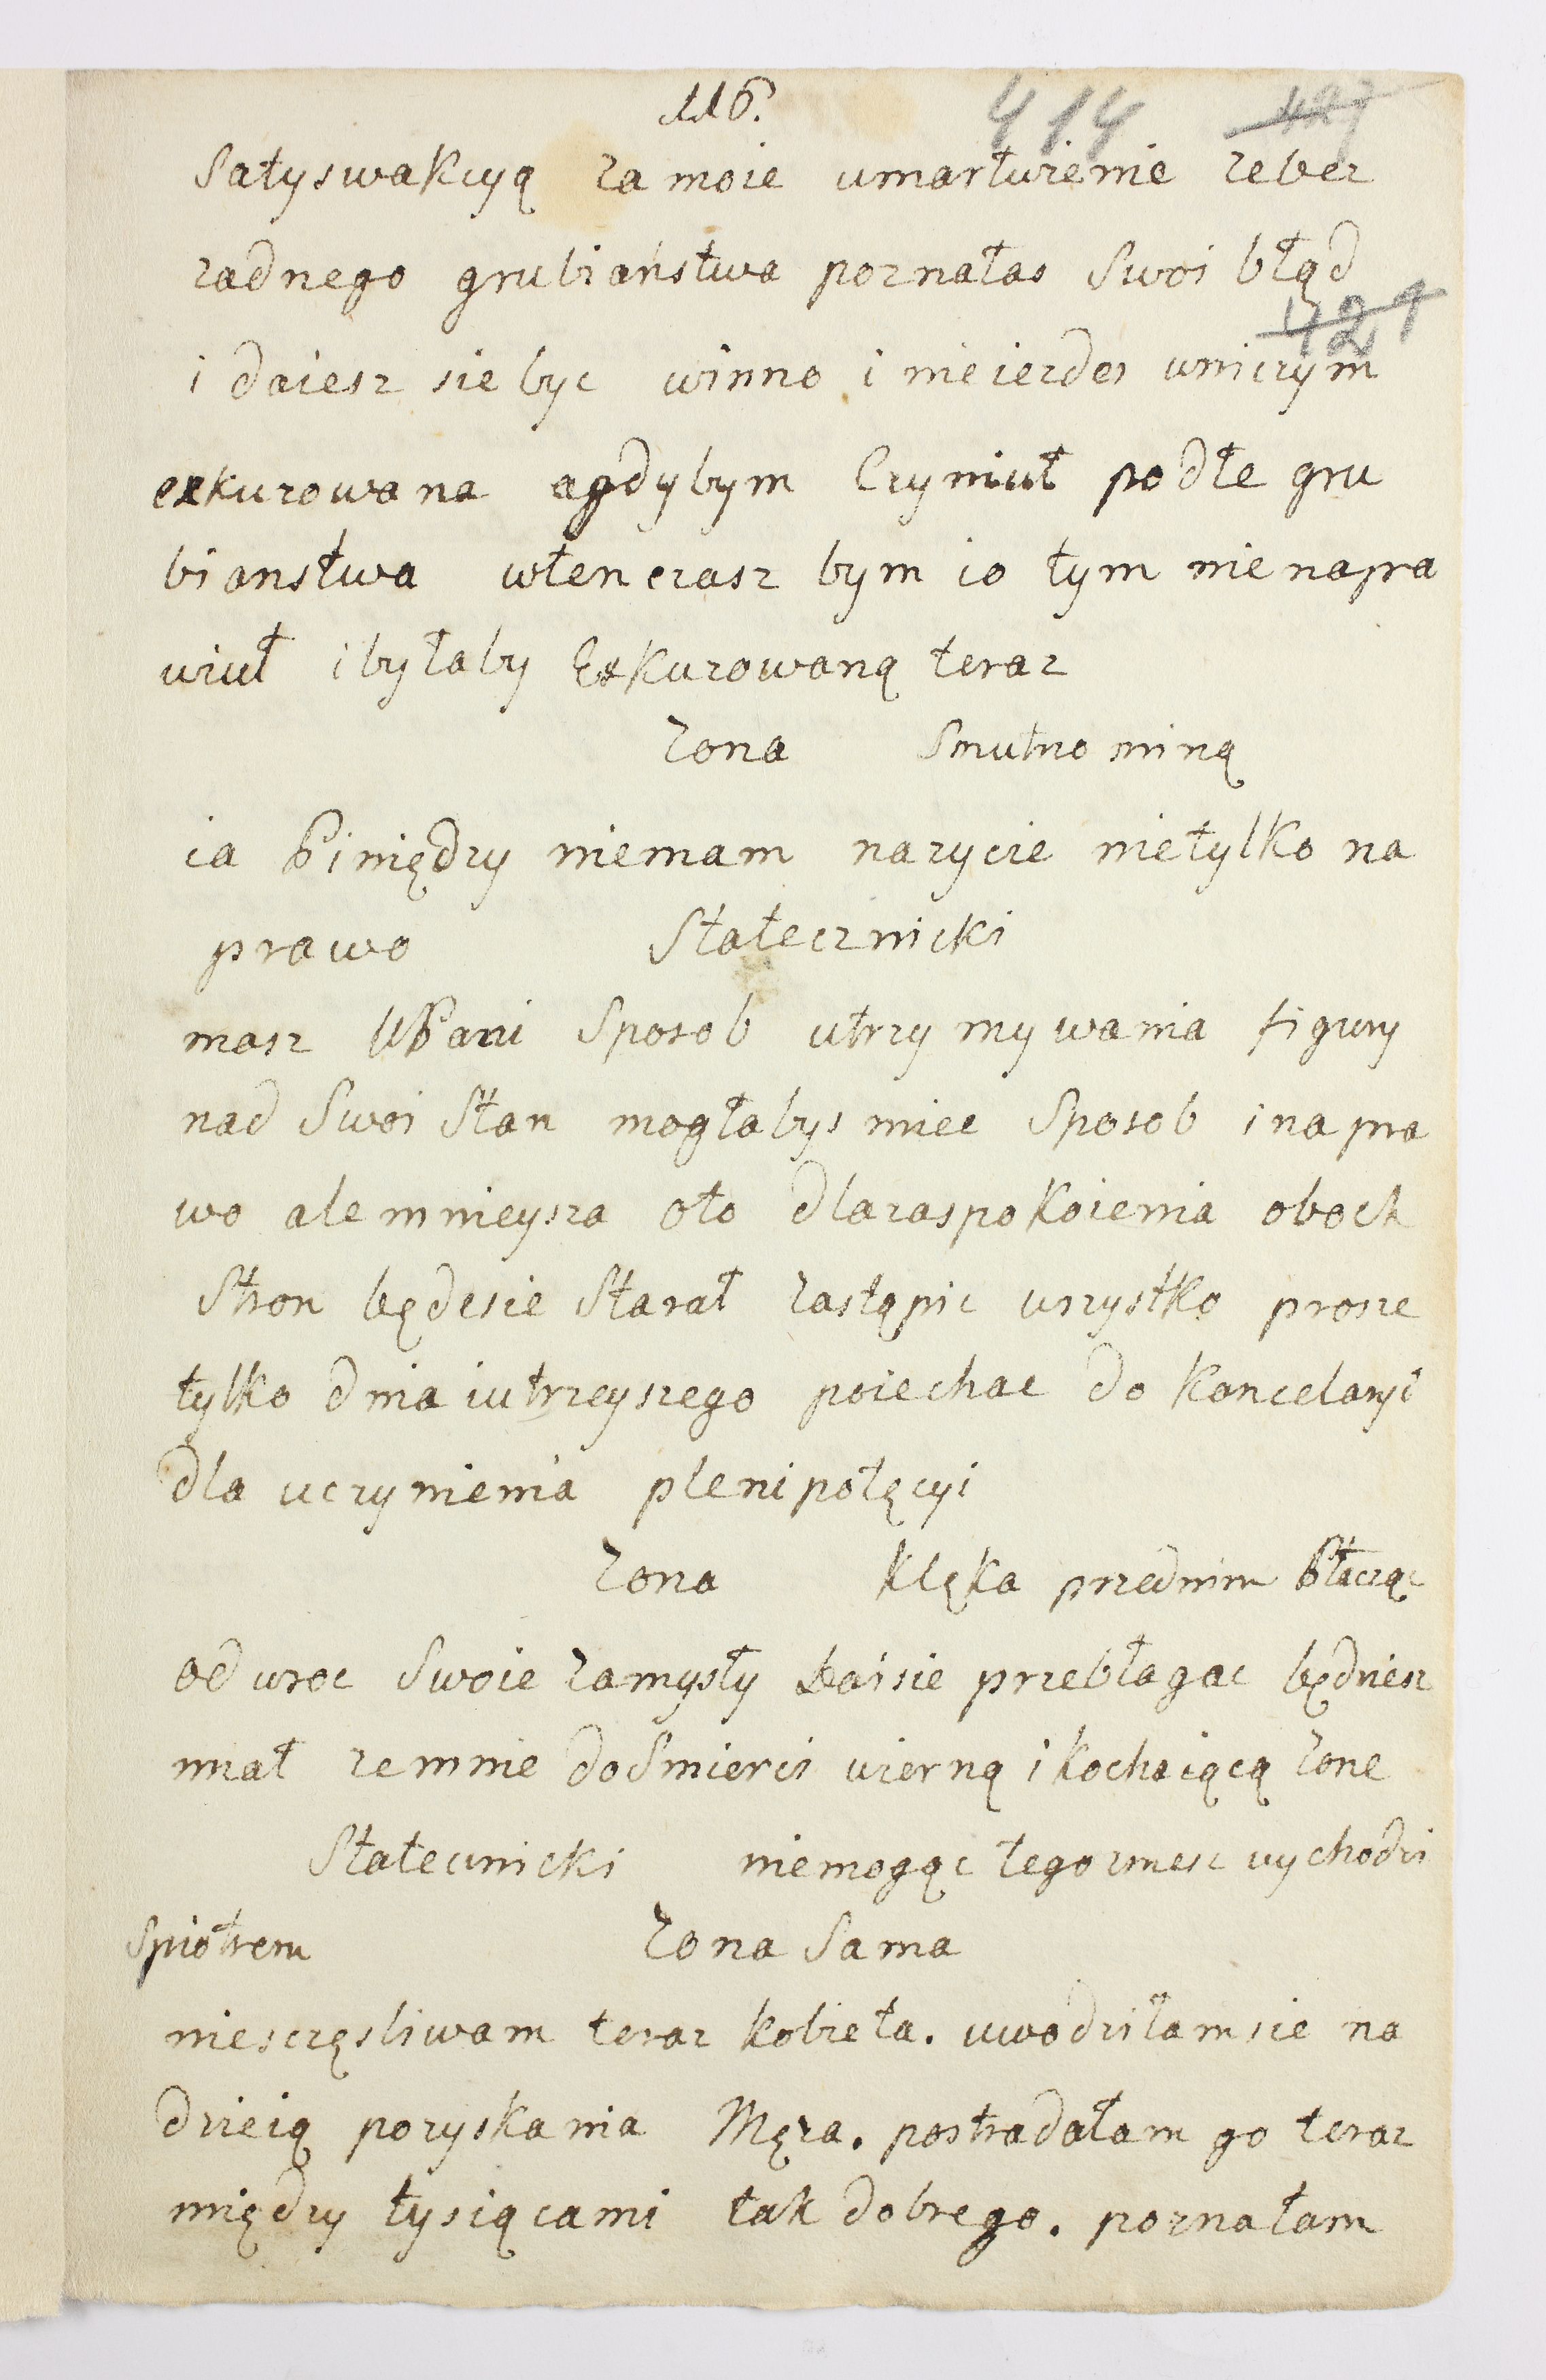 116.
414 427
Satyswakcyą za moie umartwienie zebez
zadnego grubiaństwa poznałas Swoi błąd
421
i daiesz sie byc winno i nieiezdes wniczym
exkuzowana agdybym Czyniuł podłe gru
bianstwa wtenczasz bym io tym nienapra
wiuł ibyłaby Exkuzowaną teraz
Zona Smutno miną
ia Piniędzy niemam nazycie nietylko na
prawo Statecznicki
masz WPani Sposob utrzymywania figury
nad Swoi Stan mogłabys miec Sposob inapra
wo alemnieysza oto dlazaspokoienia oboch
Stron będesie Starał zastąpic wszystko prosze
tylko dnia iutrzeyszego poiechac do Kancelaryi
dla uczynienia plenipotęcyi
Zona Klęka przednim Płacząc
odwroc Swoie zamysły Daisie przebłagac będziesz
miał zemnie doSmierci wierną ikochaiącą zone
Statecznicki niemogąc tegoznesc wychodzi
Spiotrem Zona Sama
niesczęsliwam teraz kobieta. uwodziłamsie na
dzieią pozyskania Męza. postradałam go teraz
między tysiącami tak dobrego. poznałam